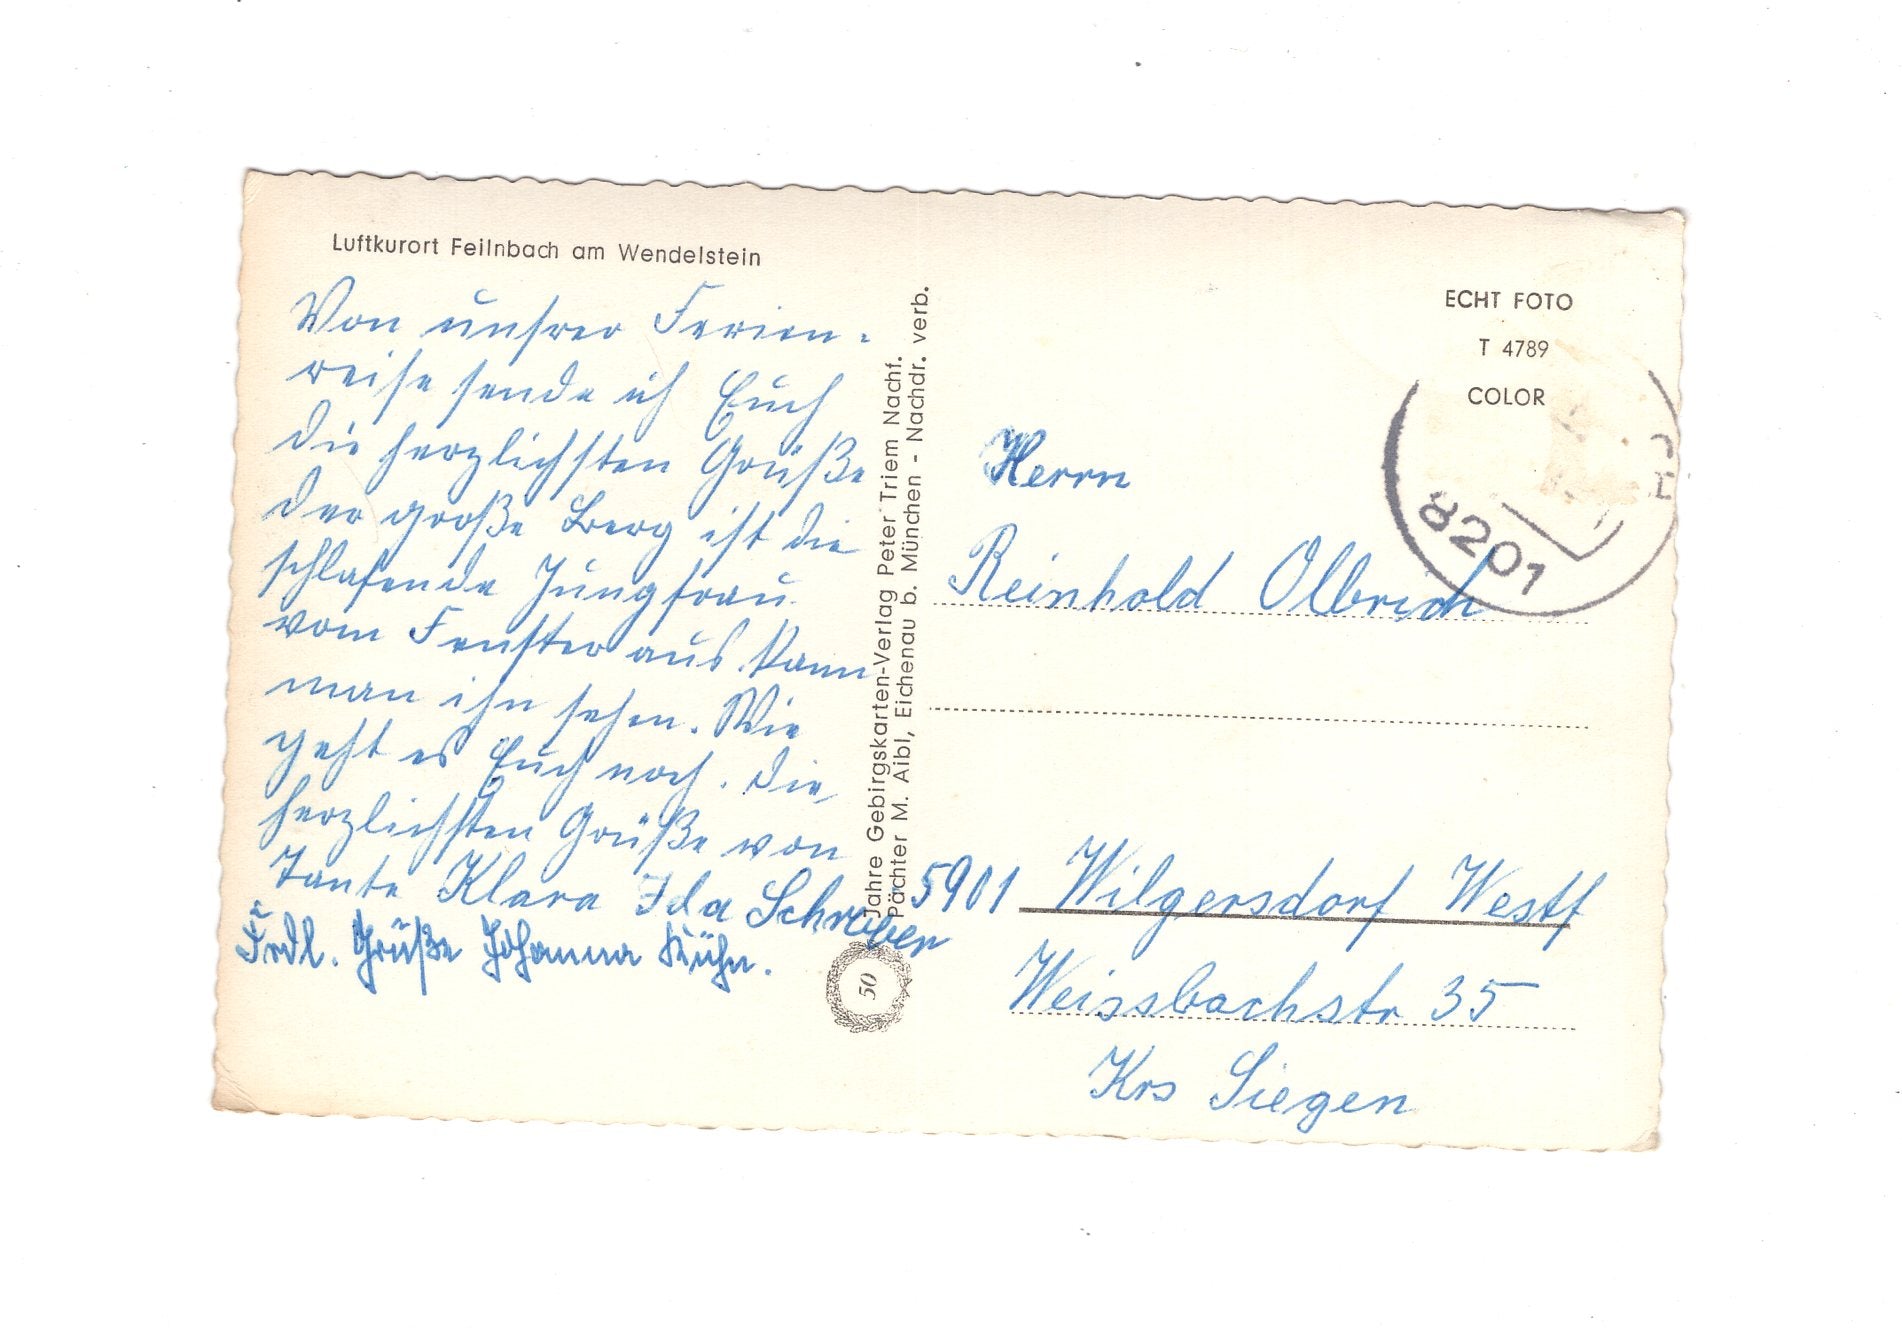 Luftkurort Feilnbach am Wendelstein
Von unsrer Ferien-
reise sende ich Euch
die herzlichsten Grüße
der große Berg ist die
schlafende Jungfrau
vom Fenster aus kann
man ihn sehen. Wie
geht es Euch noch. Die
herzlichsten Grüße von
Tante Klara Ida Schreiber
Frdl. Grüße Johanna Kühn.
Jahre Gebirgskarten-Verlag Peter Triem Nachf.
Pächter M. Aibl, Eichenau b. München - Nachdr. verb.
50
ECHT FOTO
T 4789
COLOR
8201
Herrn
Reinhold Olbrich
5901 Wilgersdorf Westf
Weissbachstr 35
Krs Siegen